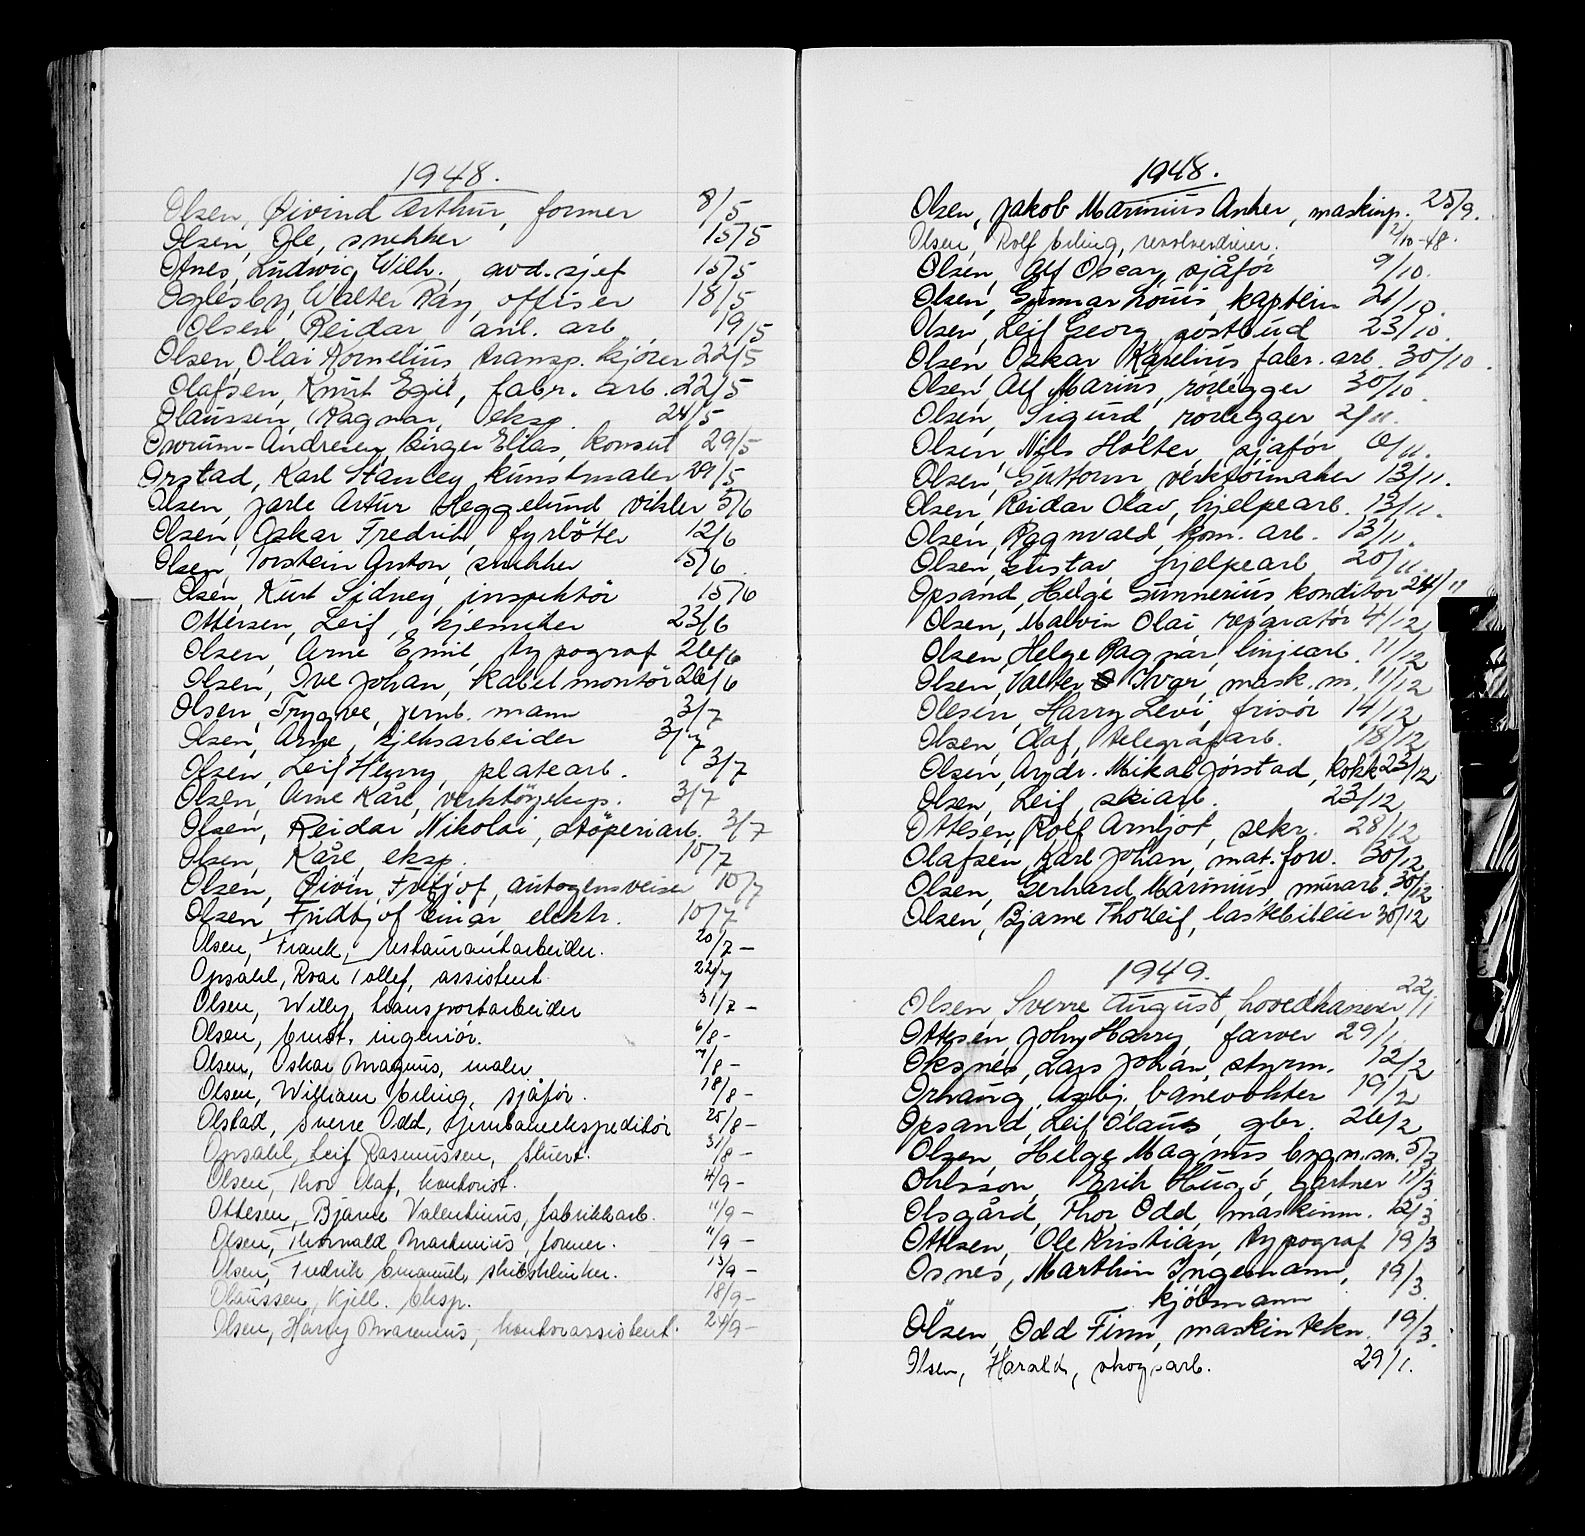 1948.
Olsen, Øivind Arthur, former 8/5
Olsen, Ole, snekker 15/5
Otnes, Ludwig Wilh., avd. sjef 15/5
Oglesby, Walter Ray, offiser 18/5
Olsen, Reidar, anl. arb 19/5
Olsen, Olai Kornelius, transp. kjörer 22/5
Olafsen, Knut Egil, fabr. arb. 22/5
Olaussen, Ragnar, eksp. 24/5
Ovrum-Andresen, Birger Elias, konsul 29/5
Orstad, Karl Stanley, kunstmaler 29/5
Olsen, Jarle Artur Heggelund, vikler 5/6
Olsen, Oskar Fredrik, fyrböter 12/6
Olsen, Torstein Anton, snekker 15/6
Olsen, Kurt Sidney, inspektör 15/6
Ottersen, Leif, kjemiker 23/6
Olsen, Arne Emil, typograf 26/6
Olsen, Ove Johan, kabelmontör 26/6
Olsen, Trygve, jernb. mann 3/7
Olsen, Arne, kjeksarbeider 3/7
Olsen, Leif Henry, platearb. 3/7
Olsen, Arne Kåre, verktöyeksp. 3/7
Olsen, Reidar Nikolai, stöperiarb. 3/7
Olsen, Kåre, eksp. 10/7
Olsen, Øivin Fritjof, autogensveiser 10/7
Olsen, Fridtjof Einar, elektr. 10/7
Olsen, Frank, restaurantarbeider. 20/7 –
Opsahl, Roar Tollef, assistent 22/7
Olsen, Willy, transportarbeider 31/7 –
Olsen, Ernst, ingeniør. 6/8 –
Olsen, Oskar Magnus, maler 7/8 –
Olsen, William Erling, sjåfør. 18/8 –
Olstad, Sverre Odd, jernbaneekspeditör 25/8 –
Opsahl, Leif Rasmussen, stuert. 31/8 –
Olsen, Thor Olaf, kontorist. 4/9 –
Ottesen, Bjarne Valentinus, fabrikkarb. 11/9 –
Olsen, Thorvald Martinius, former. 11/9 –
Olsen, Fredrik Emanuel, skibsklinker. 15/9 –
Olaussen, Kjell. Eksp. 18/9 –
Olsen, Harry Marenius, kontorassistent. 24/9 –
1948.
Olsen, Jakob Marinius Anker, maskinp. 25/9.
Olsen, Rolf Erling, revolverdreier. 2/10-48.
Olsen, Alf Oscar, sjåför 9/10.
Olsen, Gunnar Louis, kaptein 21/10.
Olsen, Leif Georg, postbud 23/10.
Olsen, Oskar Karelius, fabr. arb. 30/10.
Olsen, Alf Marius, rörlegger 30/10.
Olsen, Sigurd, rörlegger 2/11.
Olsen, Nils Holter, sjåför 6/11.
Olsen, Guttorm, verktöimaker 13/11.
Olsen, Reidar Olav, hjelpearb. 13/11.
Olsen, Ragnvald, kom. arb. 13/11.
Olsen, Gustav, hjelpearb. 20/11.
Opsand, Helge Gunnerius, konditor 24/11
Olsen, Malvin Olai, reparatör 4/12
Olsen, Helge Ragnar, linjearb. 11/12
Olsen, Valter Ivar, mask. m. 11/12
Olesen, Harry Levi, frisör 14/12
Olsen, Olaf, telegrafarb. 18/12
Olsen, Andr. Mikal Jörstad, kokk 23/12
Olsen, Leif, skiarb. 23/12
Ottesen, Rolf Arnljot, sekr. 28/12
Olafsen, Karl Johan, mat. forv. 30/12
Olsen, Gerhard Marinius, murarb. 30/12
Olsen, Bjarne Thorleif, lastebileier 30/12
1949.
Olsen, Sverre August, hovedkasserer 22/1
Ottesen, John Harry, farver 29/1.
Oksnes, Lars Johan, styrm. 12/2
Orhaug, Asbj., banevokter 19/2
Opsand, Leif Olaus, gbr. 26/2
Olsen, Helge Magnus, bygn. sn. 5/3
Ohlsson, Erik Hugo, gartner 11/3
Olsgård, Thor Odd, maskinm. 12/3
Ottesen, Ole Kristian, typograf 19/3
Osnes, Marthin Ingemann, 19/3.
kjöbmann
Olsen, Odd Finn, maskintekn. 19/3.
Olsen, Harald, skogsarb. 29/1.